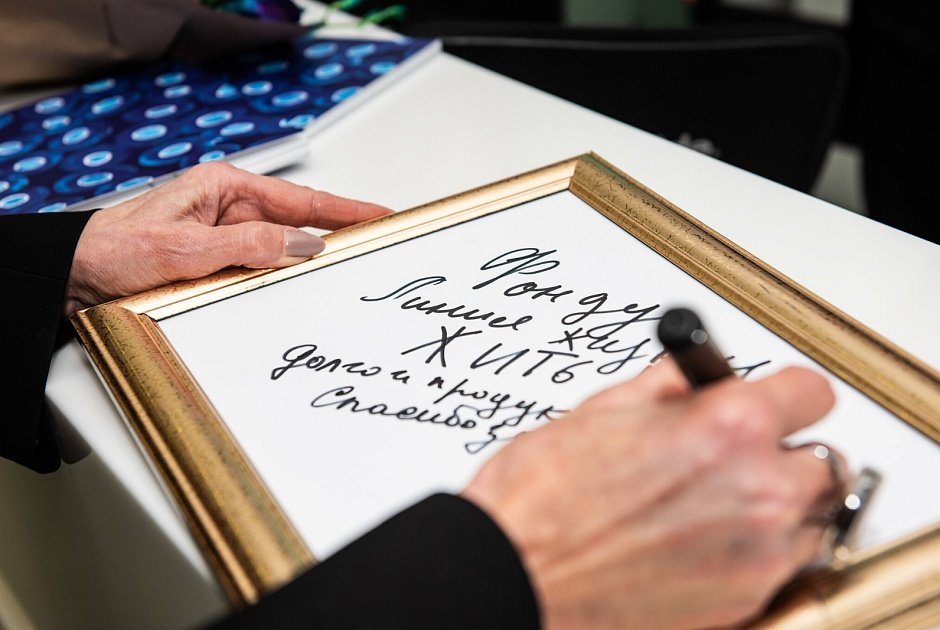 Фонду
Линия жизни
ЖИТЬ
долго и продук
Спасибо з